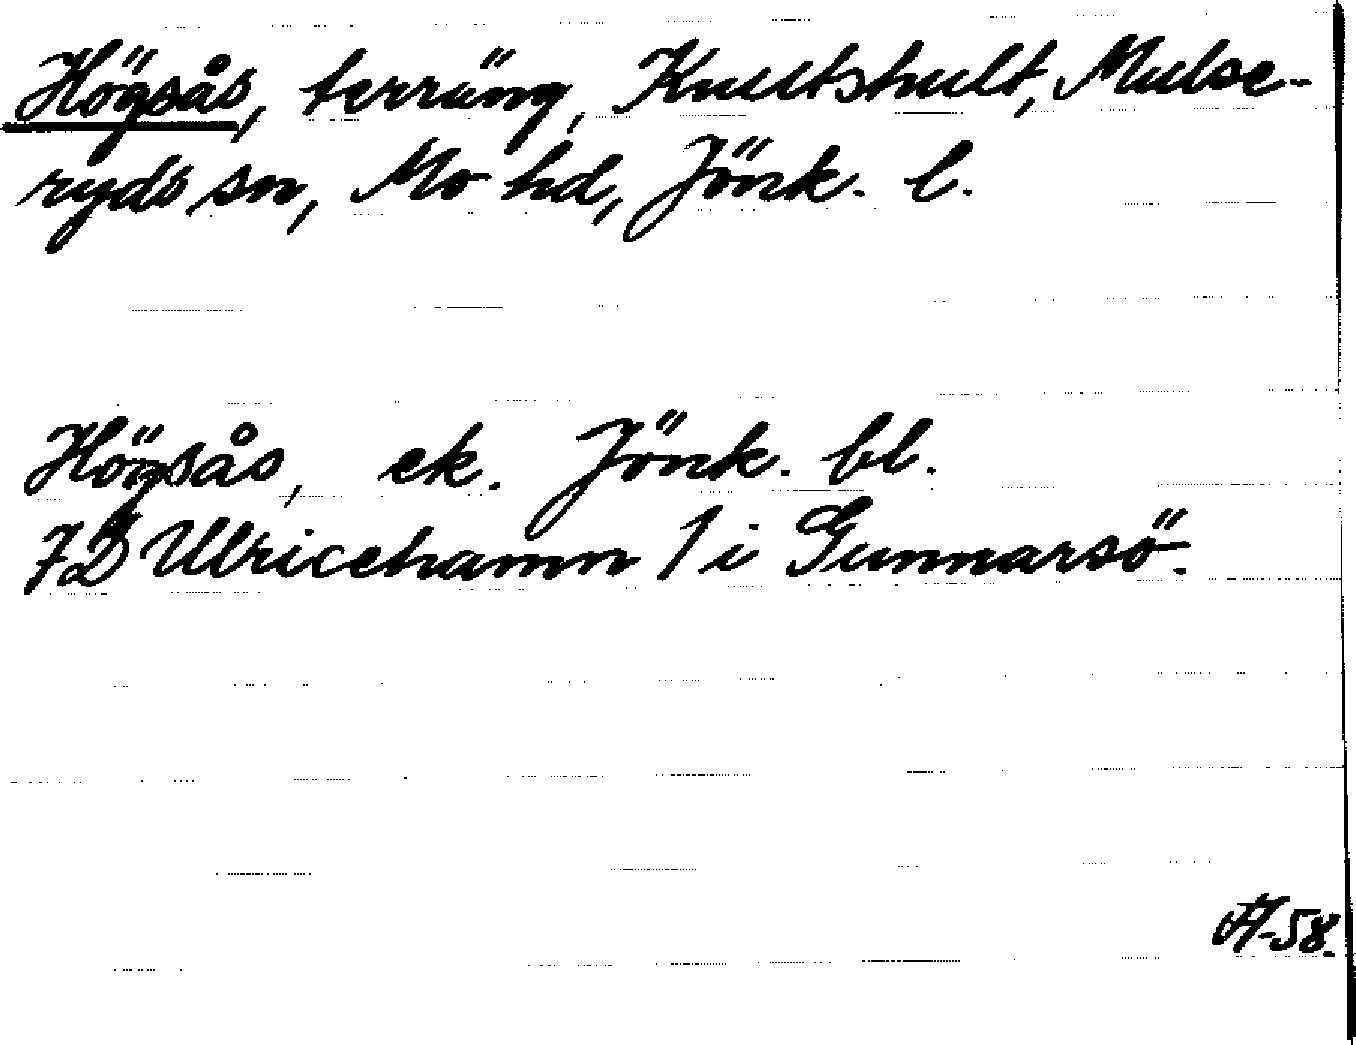 Högsås, terräng, Knutshult, Mulse-
ryds sn, Mo hd, Jönk. l.
Högsås, ek. Jönk. bl.
7D Ulricehamn 1 i Gunnarsö.
A-58.